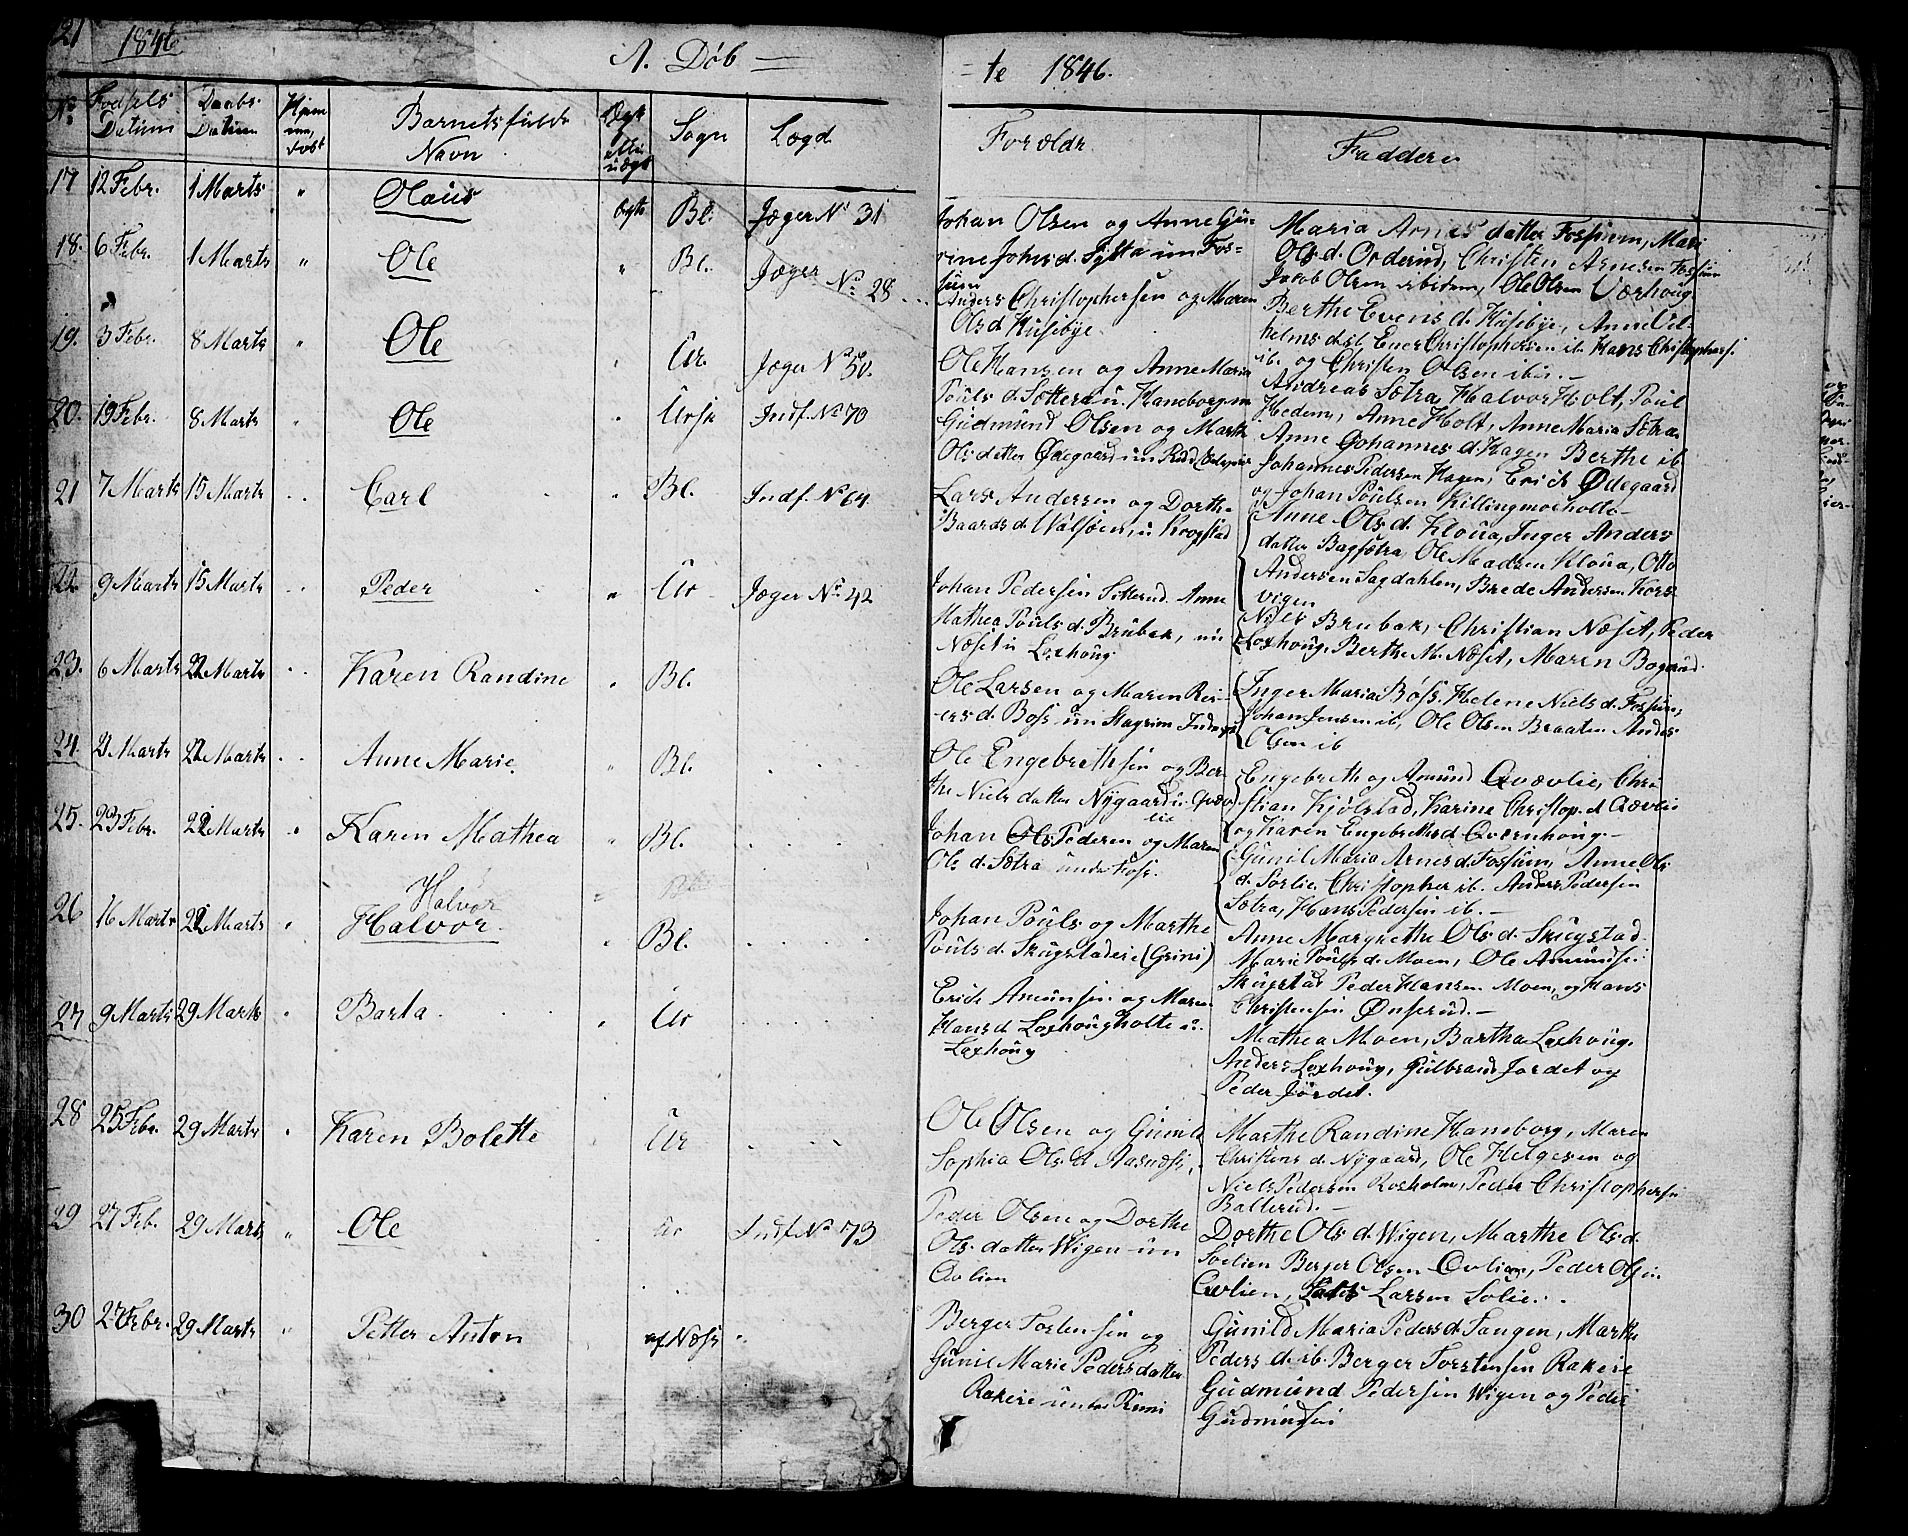 21 1846. A. Døb = = te 1846.
No Fødsels Datum Daabs Datum Hjem̄e døbt Barnets fulde Navn Ægte eller uægte Sogn Lægd Forældre Fadderne
17 12 Febr. 1 Marts " Olaus ægte Bl. Jæger No 31
Johan Olsen og Anne Gu-
rine Johns d. Sytta un Fos-
sum
Maria Arnes datter Fossum, Mari
Ols d. Orderud, Christen Arnesen Fossum
Jacob Olsen ibidem, Ole Olsen Værhoug.
18. 6 Febr. 1 Marts " Ole " Bl. Jæger No 28
Anders Christophersen og Maren
Ols d Husebye.
Berthe Evens d. Husebye, Anne Vil-
helms d. ib. Ener Christophersen ib. Hans Christophers.
ib. og Christen Olsen ibid. -
19. 3 Febr. 8 Marts " Ole " Ur. Jæger No 50.
Ole Hansen og Anne Maria
Pouls d. Sotterau. Haneborg m
Andreas Sotra, Halvor Holt, Poul
Hedem, Anne Holt, Anne Maria Sotra
20. 19 Febr. 8 Marts " Ole " Ursk Indf. No 73
Gudmund Olsen og Marth
Ols datter Ødegaard un
Anne Johannes d. Hagen Berthe ib
Johannes Pedersen Hagen, Erich Ødegaard
og Johan Poulsen Killingmoeholte -
21 7 Marts 15 Marts " Carl " Bl. Indf. No 64.
Lars Andersen og Dorthe
Baards d. Valsøen, u Krogstad
Anne Ols d. Kloua, Inger Anders
datter Bagsætra, Ole Madsen Kloua, Otto
Andersen Sagdahlen, Brede Andersen Kors
vigen
22. 9 Marts 15 Marts " Peder " Ur Jæger No 42
Johan Pedersen Sitterud. Anne
Mathea Pouls d. Brubak, un
Næset u Loxhoug.
Niels Brubak, Christian Næset, Peder
Loxhoug. Berthe M. Næset, Maren Bogerud.
23. 6 Marts 22 Marts " Karen Randine " Bl.
Ole Larsen og Maren Rei-
ers d. Bøss un Stagrim
Inger Maria Bøss. Helene Niels d. Fossum,
Johan Jensen ib, Ole Olsen Braaten Anders
Olsen ib
24. 2 Marts 22 Marts " Anne Marie " Bl.
Ole Engebrethsen og Ber
the Niels datter Nygaard u. Qvæv
lie
Engebreth og Amund Qvævlie, Chri
stian Kjølstad, Karine Christop. d Qvævlie
og Karen Engebreths d Qvernhoug. -
25. 23 Febr. 22 Marts " Karen Mathea " Bl.
Johan Ols Pedersen og Maren
Ols d. Sotra under Foss.
Gunil Maria Arnes d. Fossum, Anne Ols
d. Sorlie Christopher ib. Anders Pedersen
Sotra, Hans Pedersen ib. -
26 16 Marts 22 Marts " Halvor
Halvor. " Bl.
Johan Pouls og Marthe
Pouls d. Skugstadeie (Grini)
Anne Margrethe Ols d. Skugstad
Marie Pouls d. Moen, Ole Amundse.
Skugstad Peder Hansen Moen, og Hans
Christensen Ønserud. -
27 9 Marts 29 Marts " Barta " Ur
Erick Amunsen og Maren
Hans d Loxhougholte u.
Loxhoug
Mathea Moen, Bartha Loxhoug.
Anders Loxhoug, Gulbrand Jordet og
Peder Jordet.
28 25 Febr. 29 Marts " Karen Bolette " Ur
Ole Olsen og Gunild
Sophia Ols d Aasnæse.
Marthe Randine Haneborg, Maren
Christens d. Nygaard, Ole Helgesen og
Niels Pedersen Roxholm, Peder Christophersen
Ballerud. -
29 27 Feb. 29 Marts " Ole Ur Indf No 73
Peder Olsen og Dorthe
Ols datter Wigen un
Qvlien
Dorthe Ols d. Wigen, Marthe Ols d.
Soelien Berger Olsen Qvlien, Peder Olsen
Qvlien, Lars Larsen Solie.
30 27 Febr. 29 Marts " Petter Anton af Næss "
Berger Tostensen og
Gunil Marie Peders datter
Rakeie under Rumi
Gunild Maria Peders d. Tangen, Marthe
Peders d. ib. Berger Torstensen Rakeie
Gudmund Pedersen Wigen og Peder
Gudmundsen